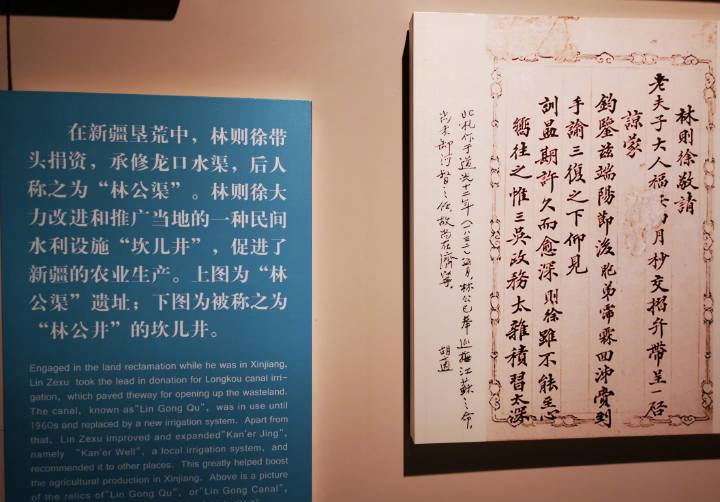 在新疆垦荒中，林则徐带
头捐资，承修龙口水渠，后人
称之为“林公渠”。林则徐大
力改进和推广当地的一种民间
水利设施“坎儿井”，促进了
新疆的农业生产。上图为“林
公渠”遗址；下图为被称之为
“林公井”的坎儿井。
Engaged in the land reclamation while he was in Xinjiang,
Lin Zexu took the lead in donation for Longkou canal irri-
gation, which paved theway for opening up the wasteland.
The canal, known as"Lin Gong Qu", was in use until
1960s and replaced by a new irrigation system. Apart from
that, Lin Zexu improved and expanded"Kan'er Jing",
namely "Kan'er Well", a local irrigation system, and
recommended it to other places. This greatly helped boost
the agricultural production in Xinjiang. Above is a picture
of the relics of"Lin Gong Qu", or"Lin Gong Canal",
林则徐敬請
老夫子大人福安四月杪交摺弁帶呈一啓
諒蒙
鈞鑒兹端陽節後胞弟霈霖回沖賫到
手諭三復之下仰見
訓勗期許久而愈深則徐雖不能至心
嚮往之惟三吳政務太雜積習太深
此札作于道光十二年（一八三二）五月，林公已奉巡撫江蘇之命，
尚未卸河督之任，故尚在濟寧。